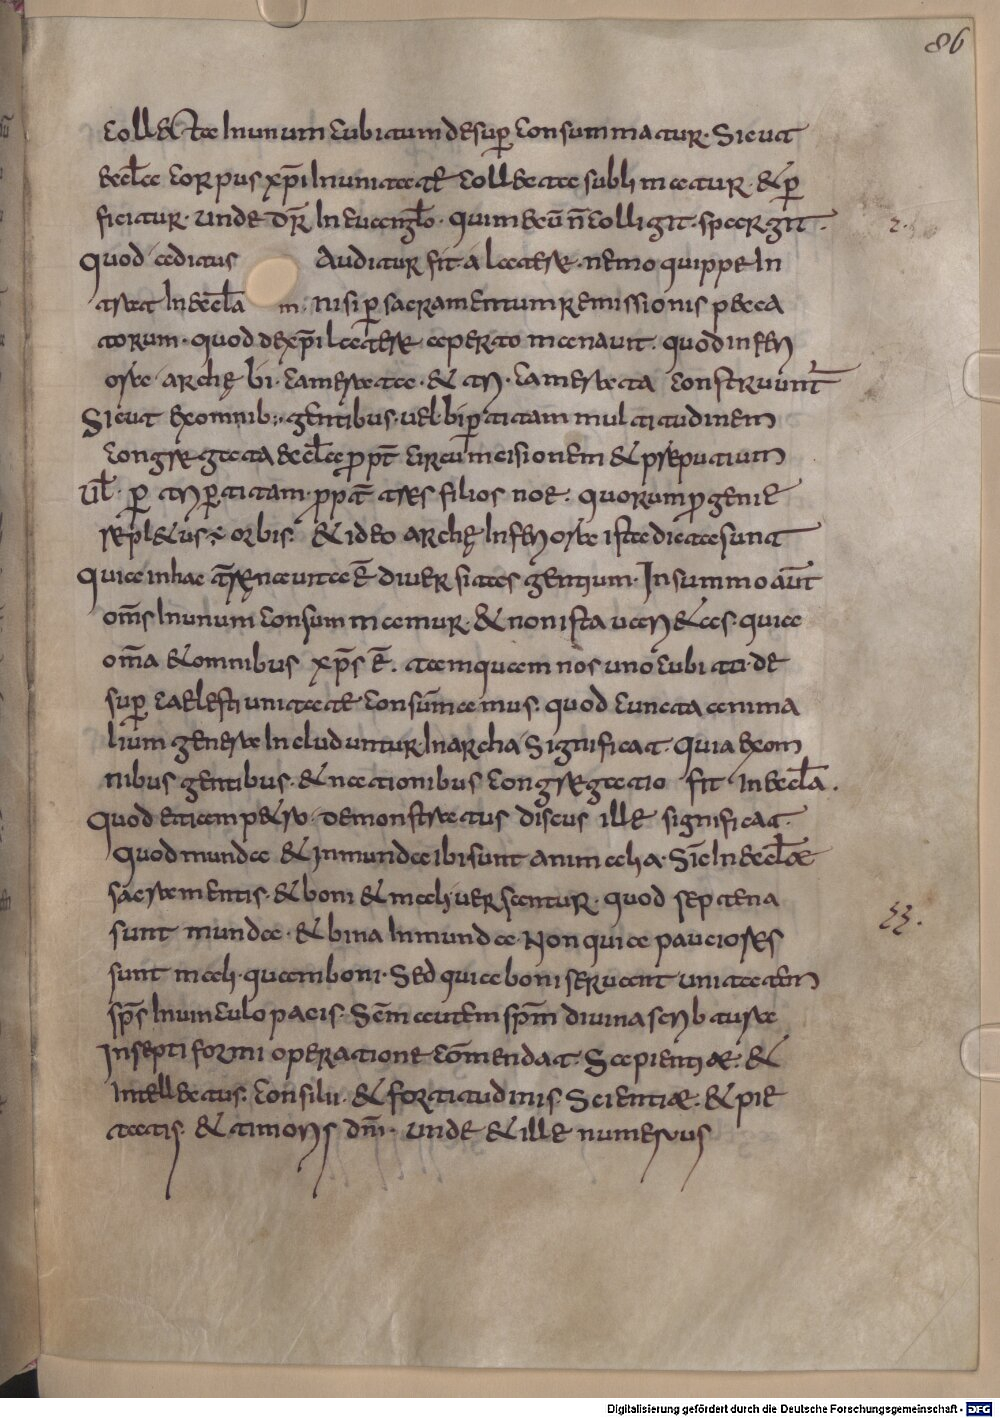 86
collecta In unum cubitum desup̄ consummatur. Sicut
eccl̄a corpus xp̄i In unitatē collecta sublimatur. & p̄
ficitur. unde dr̄ In euangl̄o. qui mecū n̄ colligit. spargit.
quod aditus Auditur fit. a latere. nemo quippe In
trat In eccl̄am. nisi p̄ sacramentum remissionis pecca
torum. quod de xp̄i latere aperto manauit. quod inferi
ora archę bi. camerata. & tri. camerata construunt̄
Sicut ex omnib; gentibus. uel. bip̄titam multitudinem
congregata eccl̄a pp̄t circumcisionem & preputium
Ul̄. p̄ trip̄titam. pp̄t tres filios noe. quorum p̄genie
repl&us ÷ orbis. & ideo archę Inferiora ista dicta sunt
Quia in hac t̄rena uita ē diuersitas gentium. In summo aūt
om̄s In unum consummamur. & non ista uari&as. quia
om̄a & omnibus xp̄s ē. tamquam nos uno cubitu. de
sup̄ caelesti unitate consūmamus. quod cuncta anima
lium genera Includuntur. In archa Significat. Quia ex om
nibus gentibus. & nationibus congregatio fit In eccl̄a.
Quod etiam p&ro. demonstratus discus ille significat.
Quod munda & Inmunda ibi sunt animalia. Sic In eccl̄ae
sacramentis. & boni & mali uersantur. quod septena
sunt munda. & bina Inmunda. Non quia pauciores
sunt mali. quam boni. Sed quia boni seruant unitatem
sp̄s In uinculo pacis. Sc̄m autem sp̄m diuina scribtura
In septiformi operatione cōmendat. Sapientiae. &
Intellectus. Consilii. & fortitudinis. Scientiae. & pie
tatis. & timoris dn̄i. unde & ille numerus
Digitalisierung gefördert durch die Deutsche Forschungsgemeinschaft - DFG